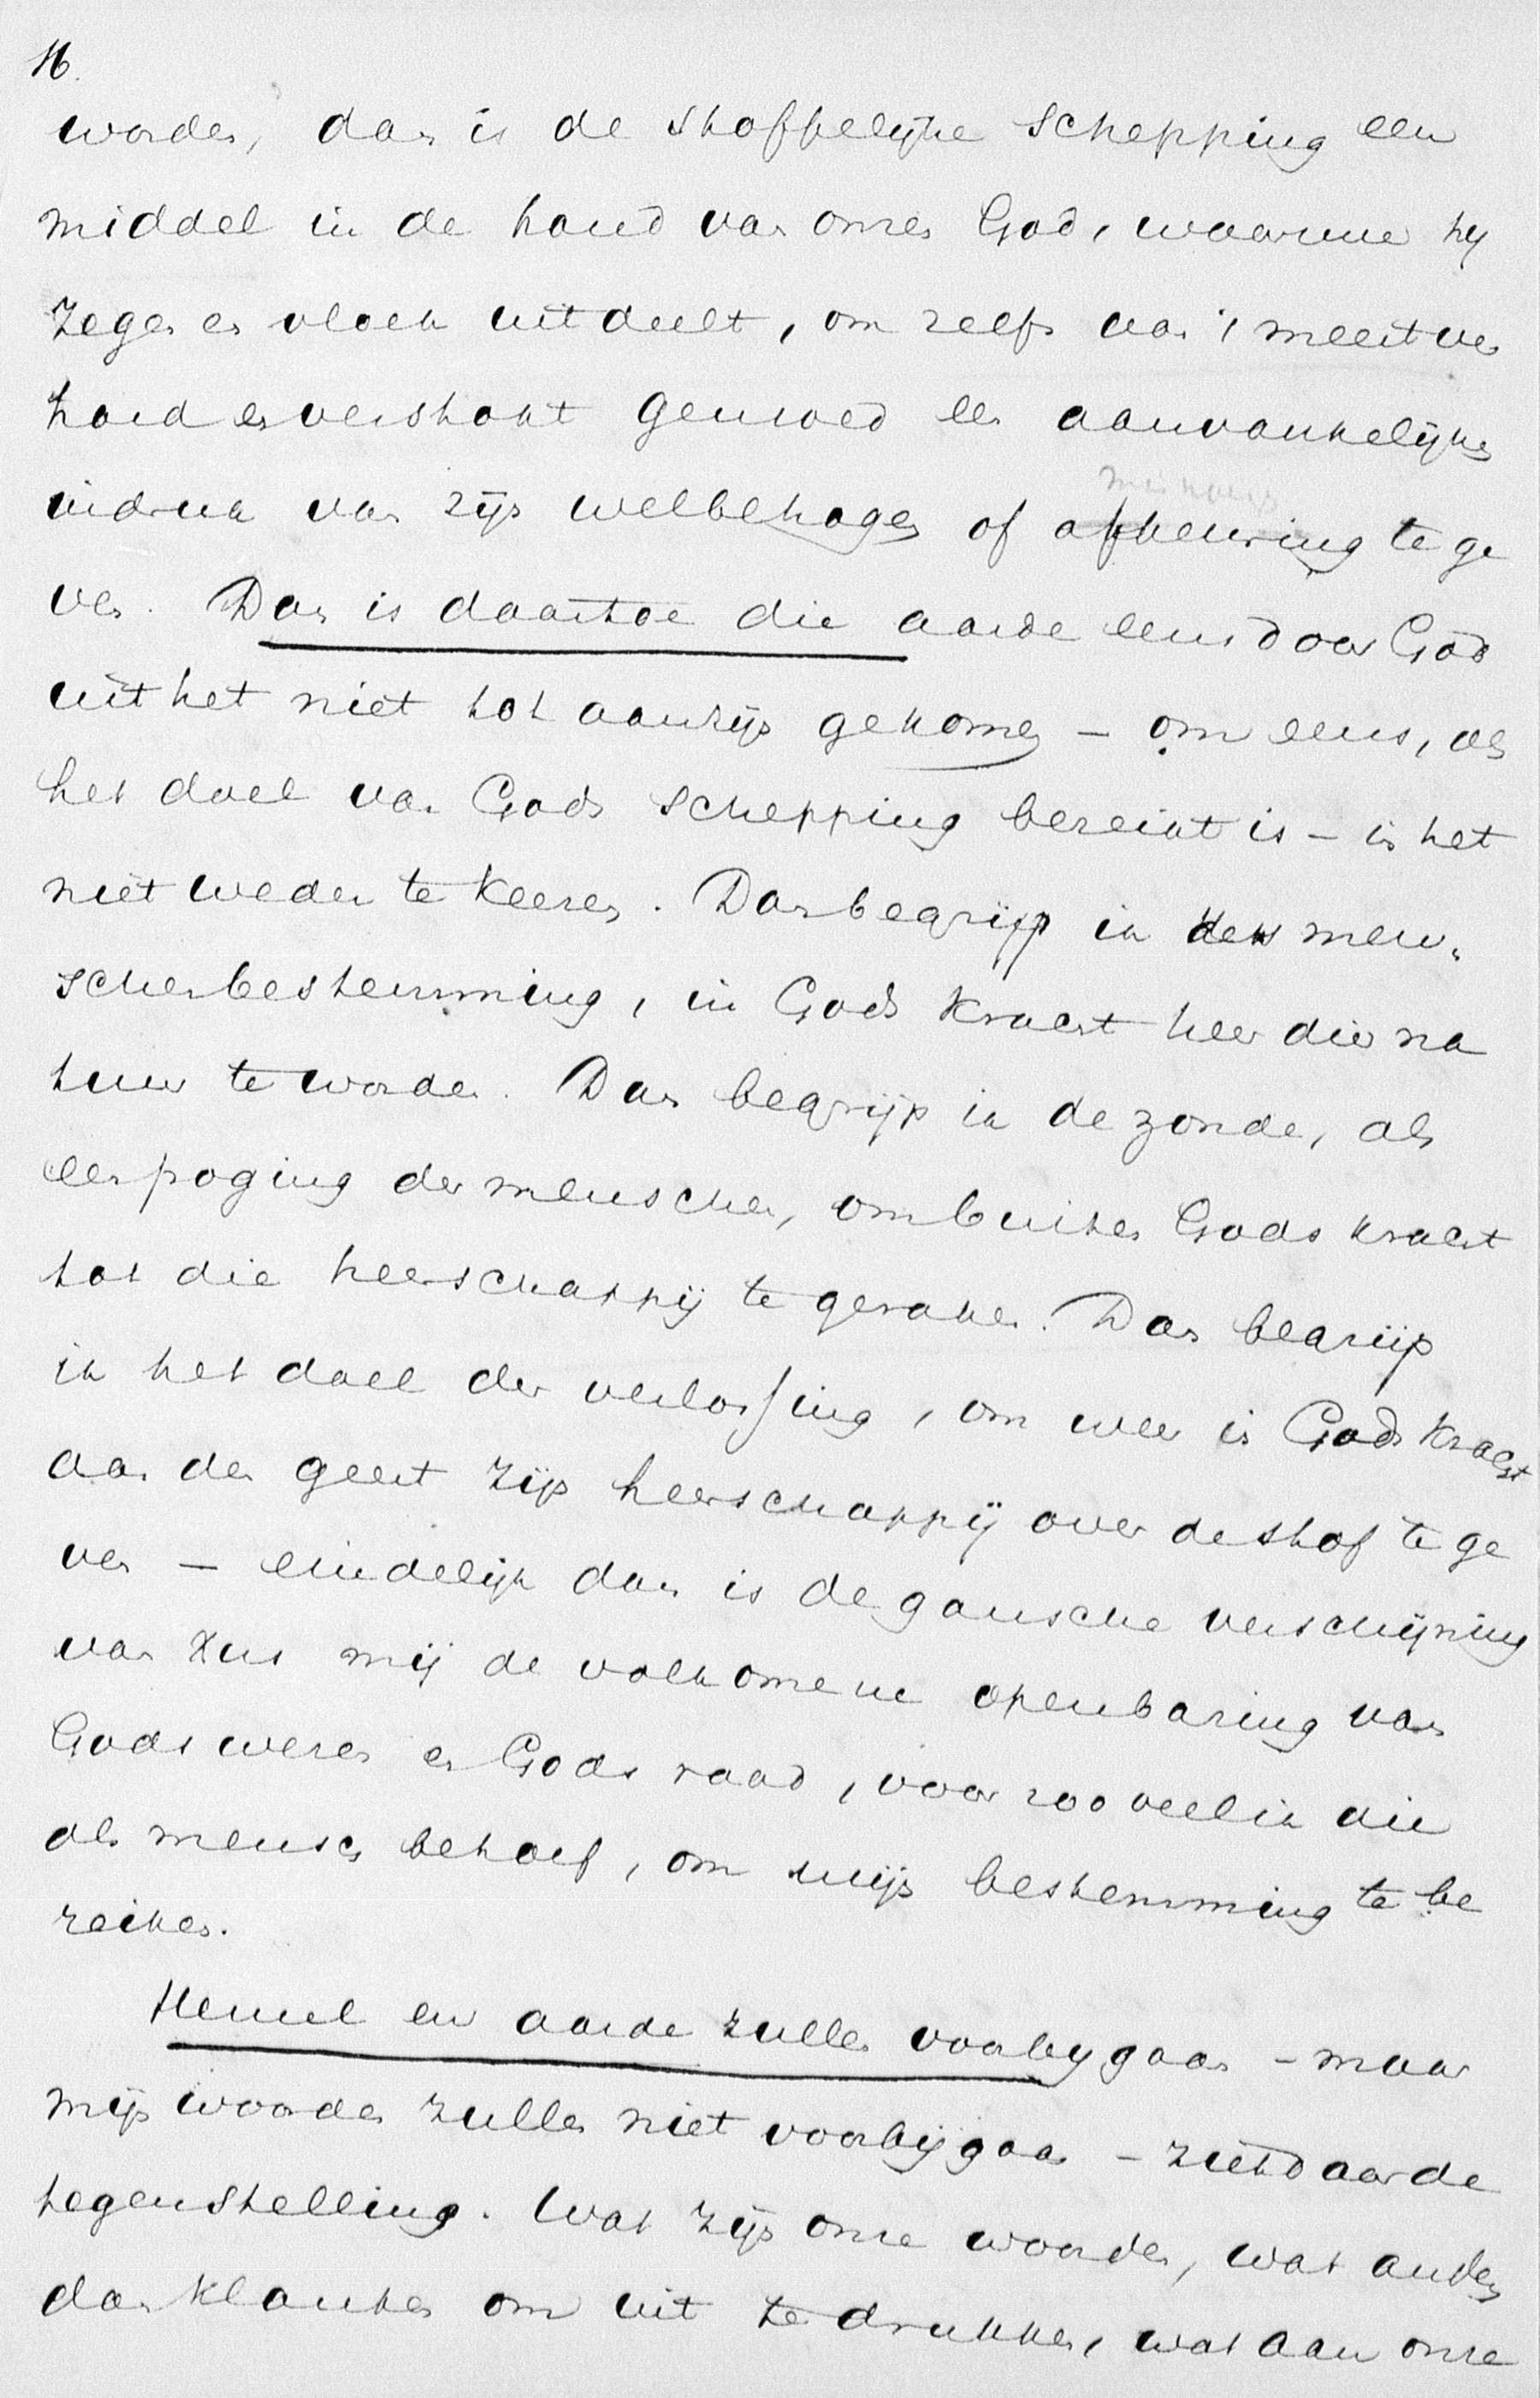 16.
worden, dan is de stoffelijke schepping een
middel in de hand van onzen God, waarmee hy
zegen en vloek uitdeelt, om zelfs van 't meest ver
hard en verstokt gemoed een aanvankelijken
indruk van zijn welbehagen of afkeuring te ge
ven. Dan is daartoe die aarde eens door God
uit het niet tot aanzijn gekomen – om eens, als
het doel van Gods schepping bereikt is – in het
niet weder te keeren. Dan begrijp ik des men„
schenbestemming, in Gods kracht heer dier na
tuur te worden. Dan begrijp ik de zonde, als
een poging der menschen, om buiten Gods kracht
tot die heerschappij te geraken. Dan begrijp
ik het doel der verlossing, om weer in Gods kracht
aan den geest zijn heerschappij over de stof te ge
ven – eindelijk dan is de gansche verschijning
van Xus mij de volkomene openbaring van
Gods wezen en Gods raad, voor zooveel ik die
als mensch behoef, om mijn bestemming te be
reiken.
Hemel en aarde zullen voorbygaan – maar
mijn woorden zullen niet voorbijgaan – ziet daar de
tegenstelling. Wat zijn onze woorden, wat anders
dan klanken om uit te drukken, wat aan onze